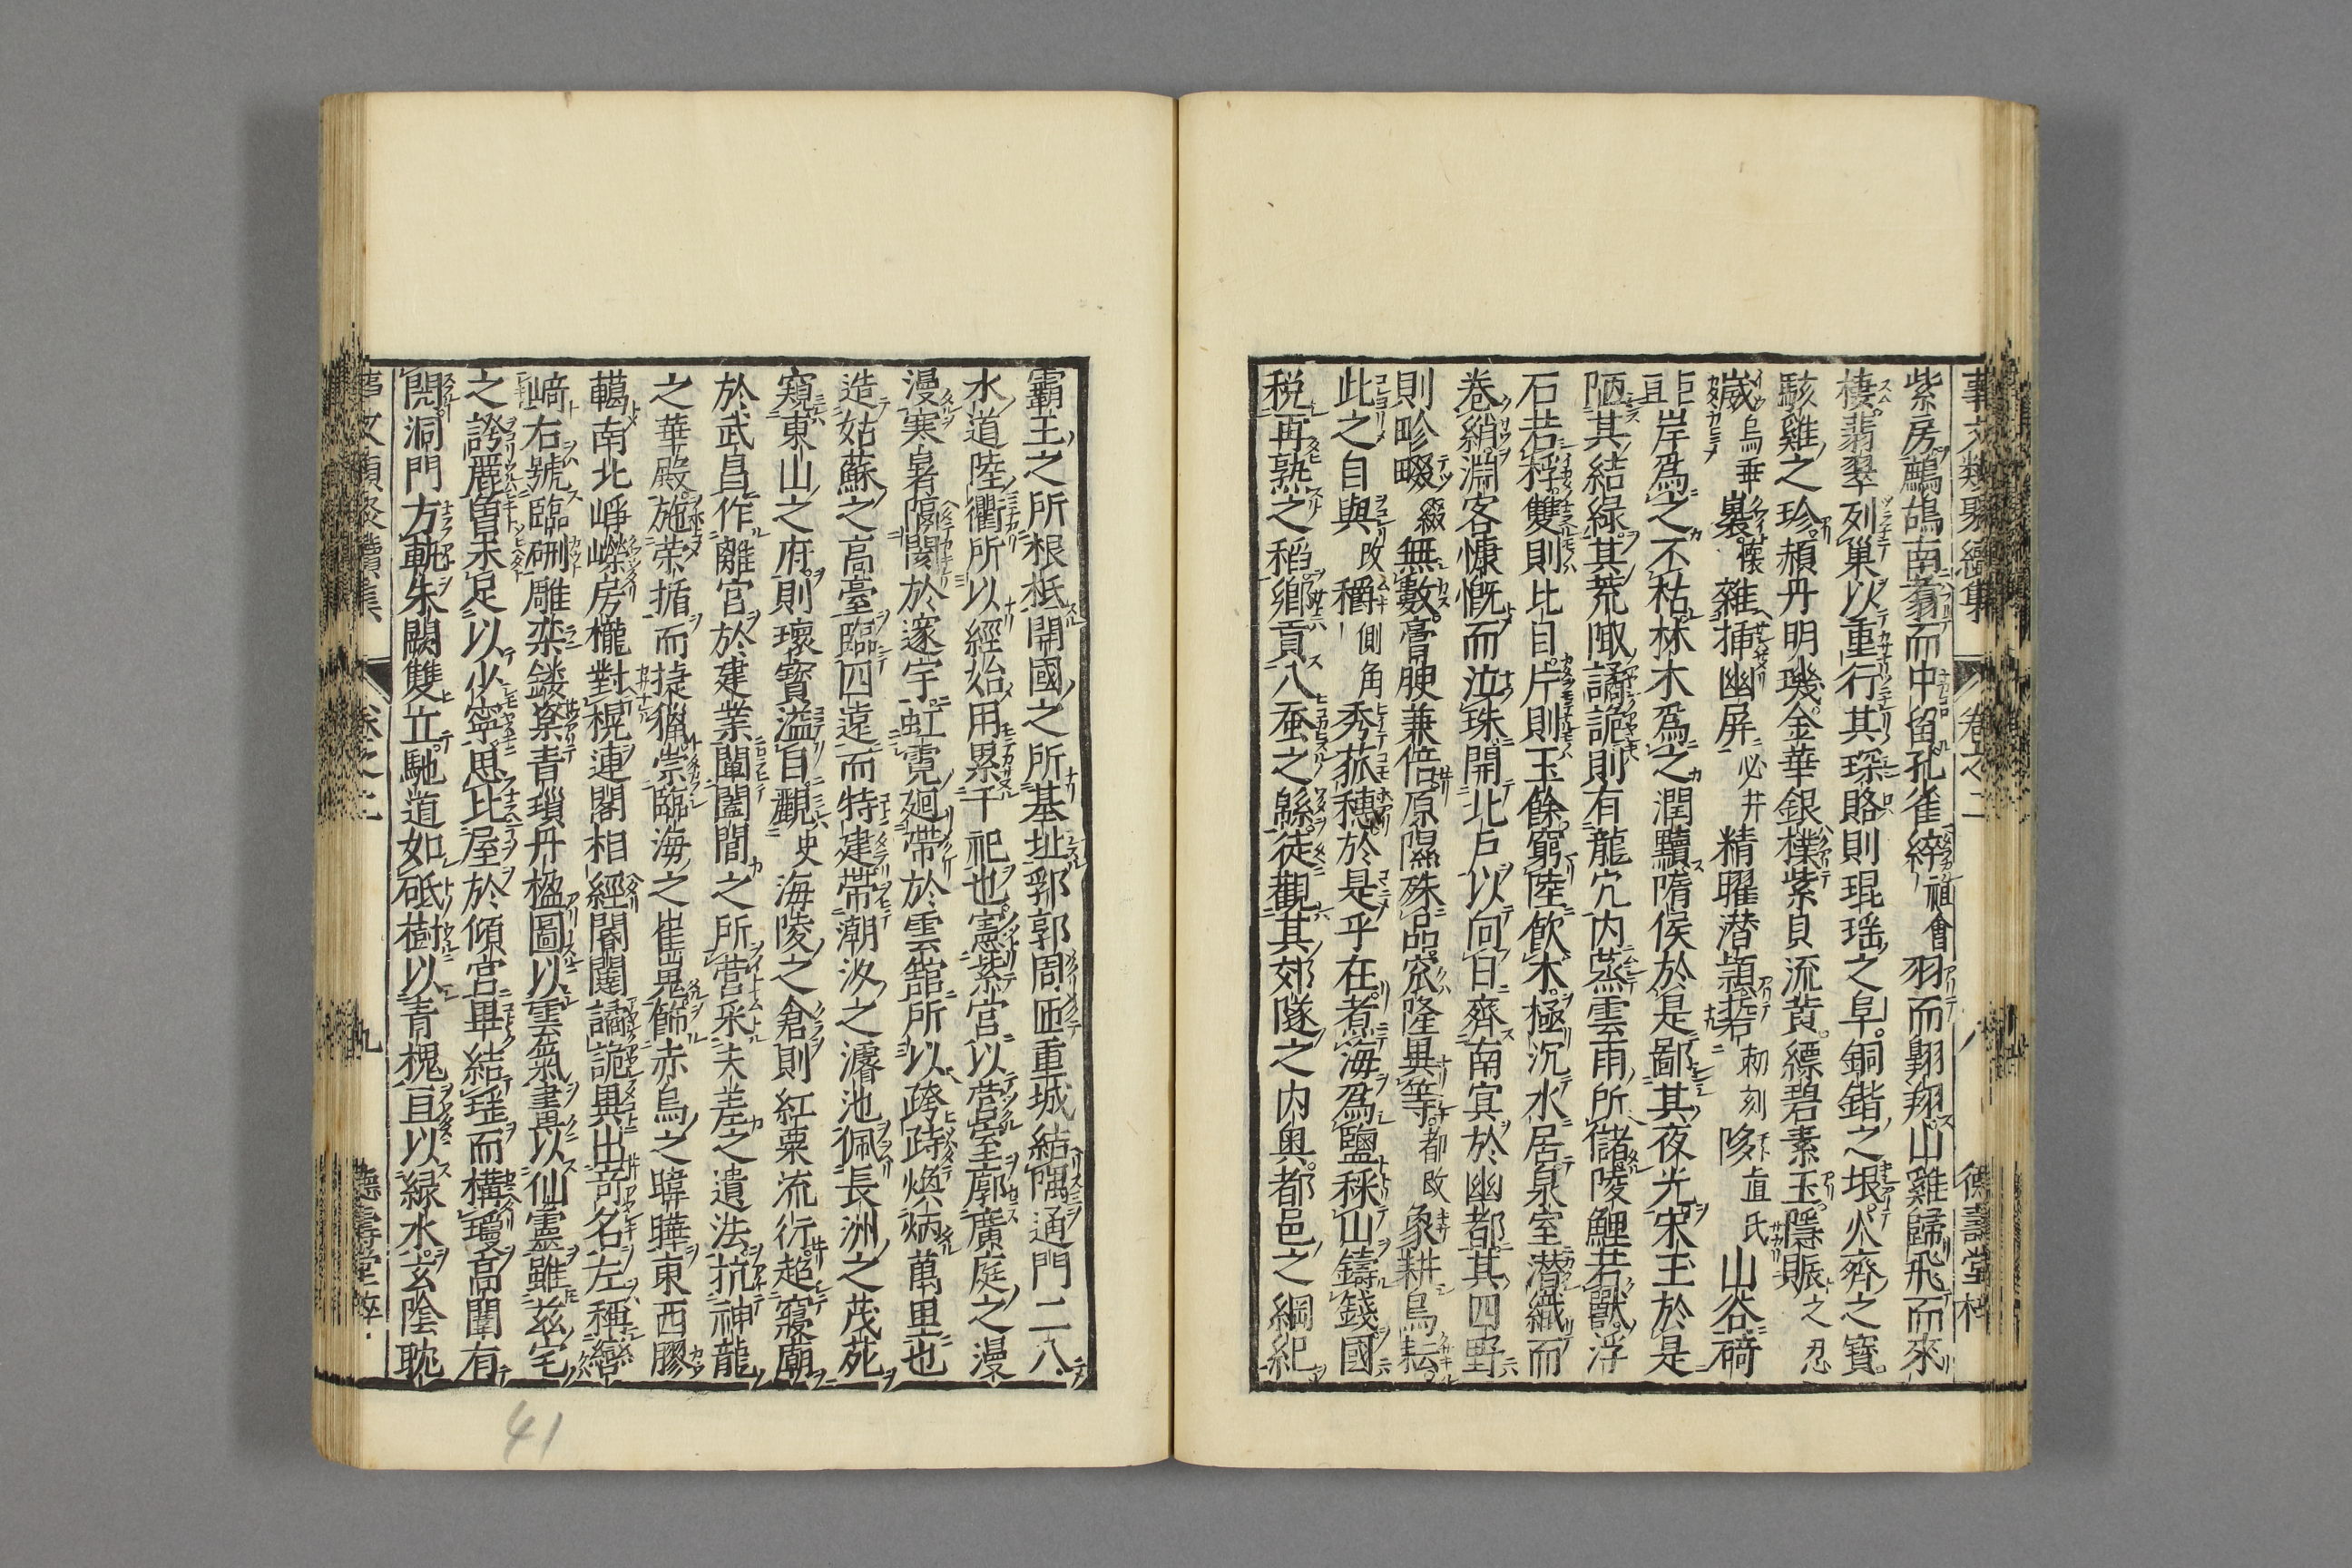 事文類聚續集 卷之二 八 德壽堂梓
紫房鷓鴣南翥而中留孔雀綷祖會羽而翺翔山雞歸飛而來
棲翡翠列巢以重行其琛賂則琨瑶之阜銅鍇之垠火齊之寶
駭雞之珍赬丹明璣金華銀樸紫貝流黄縹碧素玉隱賑之忍
崴烏乖㠢懷雜挿幽屏必井精曜潜頴硩剌刻陊直氏山谷碕
巨岸爲之不枯林木爲之潤黷隋侯於是鄙其夜光宋玉於是
陋其結緑其荒陬譎詭則有龍穴内蒸雲雨所儲陵鯉若獸浮
石若桴雙則比目片則王餘窮陸飲木極沉水居泉室潜織而
卷綃淵客慷慨而泣珠開北户以向日齊南冥於幽都其四野
則畛畷綴無數膏腴兼倍原隰殊品窊隆異等都改象耕烏耘
此之自與改穱側角秀菰穗於是乎在煮海爲鹽採山鑄錢國
税再熟之稻鄉貢八蚕之緜徒觀其郊隧之内奥都邑之綱紀
霸王之所根柢開國之所基址郛郭周匝重城結隅通門二八
水道陸衢所以經始用累千祀也憲紫宫以營室廓廣庭之漫
漫寒暑隔閡於邃宇虹霓廻帶於雲舘所以跨跱煥炳萬里也
造姑蘇之高臺臨四遠而特建帶潮汐之濬池佩長洲之茂苑
窺東山之府則瓌寳溢目觀史海陵之倉則紅粟流衍起寢廟
於武昌作離宫於建業闡闔閭之所營采夫差之遺法抗神龍
之華殿施荣揗而捷獵崇臨海之崔嵬飾赤烏之暐曄東西膠
轕南北崢嶸房櫳對榥連閣相經閽闥譎詭異出奇名左稱彎
﨑右號臨硎雕栾鏤楶青瑣丹楹圖以雲氣畫以仙靈雖兹宅
之誇麗曽未足以少寧思比屋於傾宫畢結瑶而構瓊高闈有
閌洞門方軌朱闕雙立馳道如砥樹以青槐亘以緑水玄陰眈
事文類聚續集 卷之二 九 德壽堂梓
41